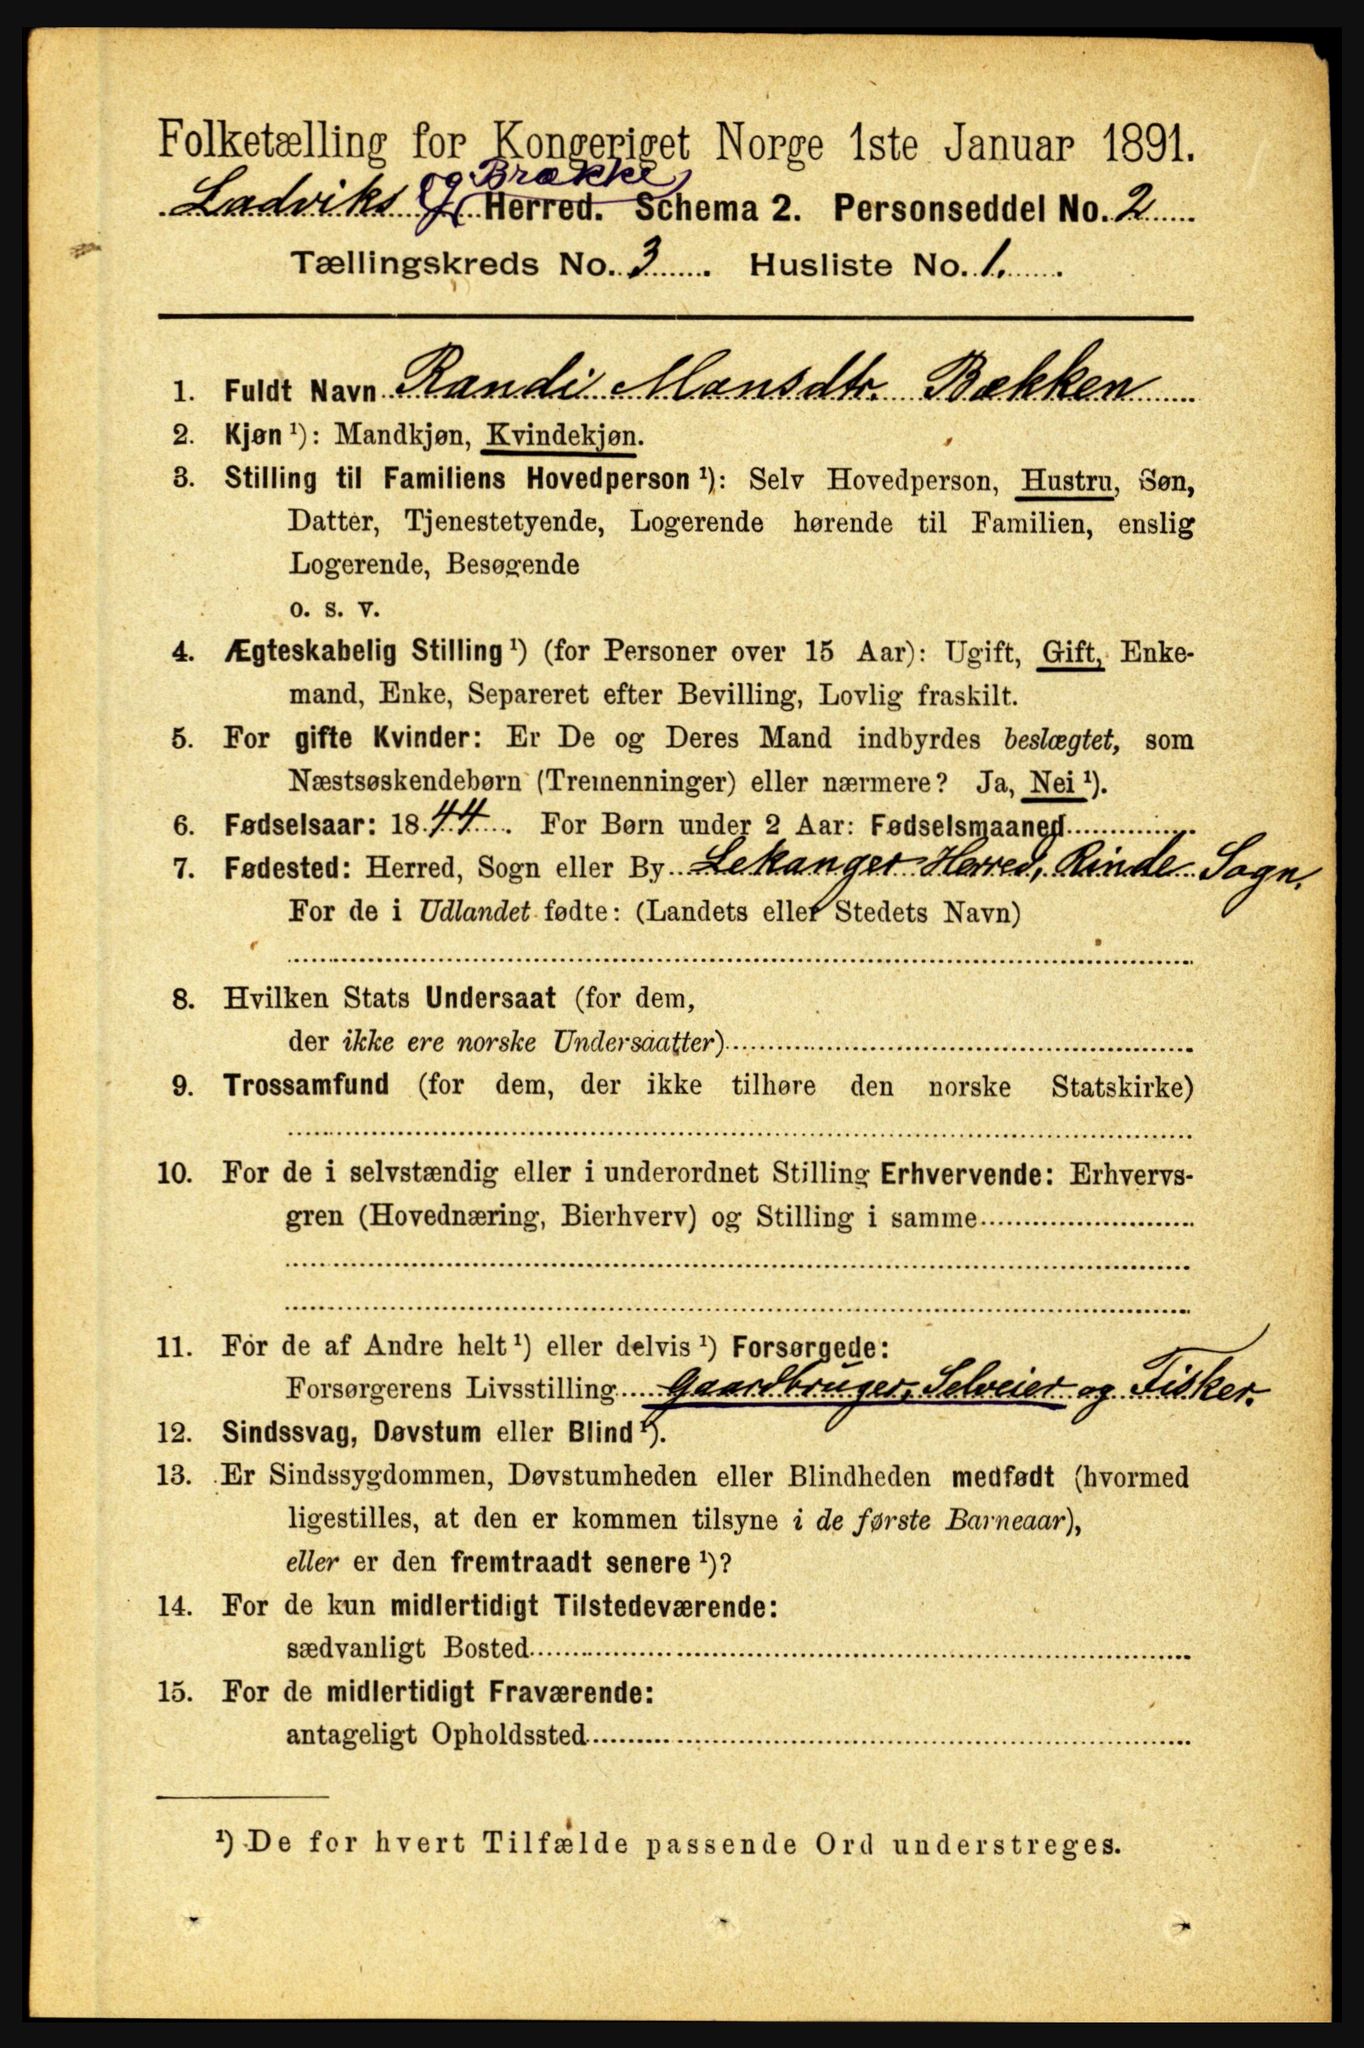 Folketælling for Kongeriget Norge 1ste Januar 1891.
Ladviks og Brække Herred. Schema 2. Personseddel No. 2
Tællingskreds No. 3 Husliste No. 1.
1. Fuldt Navn Randi Monsdtr. Bækken
2. Kjøn ¹): Mandkjøn, Kvindekjøn.
3. Stilling til Familiens Hovedperson ¹): Selv Hovedperson, Hustru, Søn,
Datter, Tjenestetyende, Logerende hørende til Familien, enslig
Logerende, Besøgende
o. s. v.
4. Ægteskabelig Stilling ¹) (for Personer over 15 Aar): Ugift, Gift, Enke-
mand, Enke, Separeret efter Bevilling, Lovlig fraskilt.
5. For gifte Kvinder: Er De og Deres Mand indbyrdes beslægtet, som
Næstsøskendebørn (Tremenninger) eller nærmere? Ja, Nei ¹).
6. Fødselsaar: 1844. For Børn under 2 Aar: Fødselsmaaned
7. Fødested: Herred, Sogn eller By Lekanger Herred, Rinde Sogn.
For de i Udlandet fødte: (Landets eller Stedets Navn)
8. Hvilken Stats Undersaat (for dem,
der ikke ere norske Undersaatter)
9. Trossamfund (for dem, der ikke tilhøre den norske Statskirke)
10. For de i selvstændig eller i underordnet Stilling Erhvervende: Erhvervs-
gren (Hovednæring, Bierhverv) og Stilling i samme
11. For de af Andre helt ¹) eller delvis ¹) Forsørgede:
Forsørgerens Livsstilling Gaardbruger, Selveier og Fisker.
12. Sindssvag, Døvstum eller Blind ¹).
13. Er Sindssygdommen, Døvstumheden eller Blindheden medfødt (hvormed
ligestilles, at den er kommen tilsyne i de første Barneaar),
eller er den fremtraadt senere ¹)?
14. For de kun midlertidigt Tilstedeværende:
sædvanligt Bosted
15. For de midlertidigt Fraværende:
antageligt Opholdssted
¹) De for hvert Tilfælde passende Ord understreges.